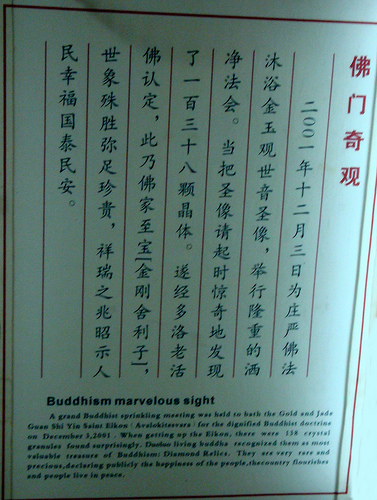 佛门奇观
二〇〇一年十二月三日为庄严佛法
沐浴金玉观世音圣像，举行隆重的洒
净法会。当把圣像请起时惊奇地发现
了一百三十八颗晶体。遂经多洛老活
佛认定，此乃佛家至宝[金刚舍利子]，
世象殊胜弥足珍贵，祥瑞之兆昭示人
民幸福国泰民安。
Buddhism marvelous sight
A grand Buddhist sprinkling meeting was held to bath the Gold and Jade
Guan Shi Yin Saint Eikon (Avalokitesvara) for the dignified Buddhist doctrine
on December 3,2001 . When getting up the Eikon, there were 138 crystal
granules found surprisingly. Duoluo living buddha recognized them as most
valuable treasure of Buddhism: Diamond Relics. They are very rare and
precious,declaring publicly the happiness of the people,thecountry flourishes
and people live in peace.